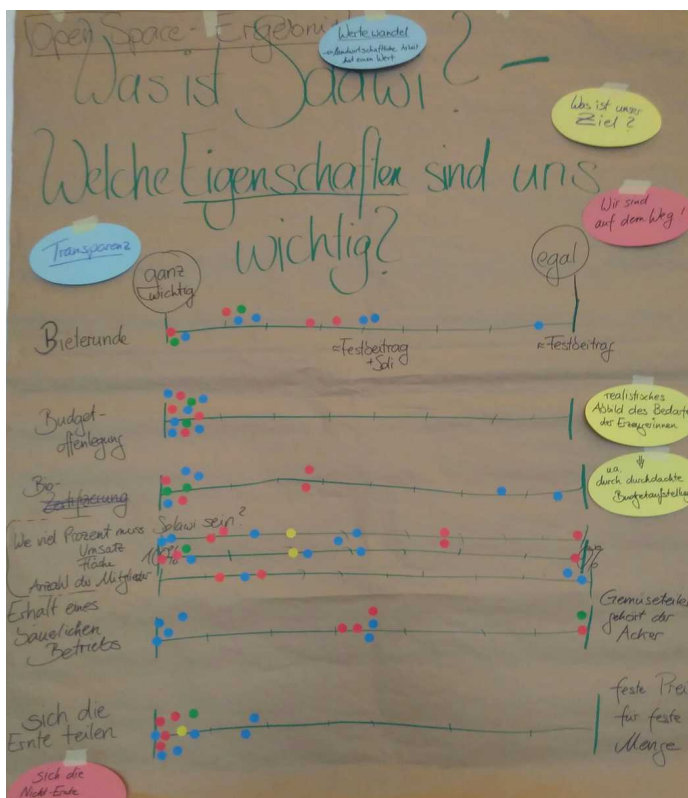 Open Space - Ergebnis
Wertewandel
→ landwirtschaftliche Arbeit
hat einen Wert
Was ist Solawi? -
Was ist unser
Ziel?
Welche Eigenschaften sind uns
wichtig?
Wir sind
auf dem Weg!
Transparenz
ganz
wichtig
egal
Bieterunde
=Festbeitrag
+ Soli
=Festbeitrag
Budget-
offenlegung
realistisches
Abbild des Bedarfs
der Erzeugerinnen
Bio-
Zertifizerung
u.a.
durch durchdachte
Budgetaufstellung
Wie viel Prozent muss Solawi sein?
Umsatz
Fläche
100%
Anzahl der Mitglieder
Erhalt eines
bäuerlichen
Betriebs
Gemüseteiler
gehört der
Acker
sich die
Ernte teilen
feste Prei
für feste
Menge
sich die
Nicht-Ernte